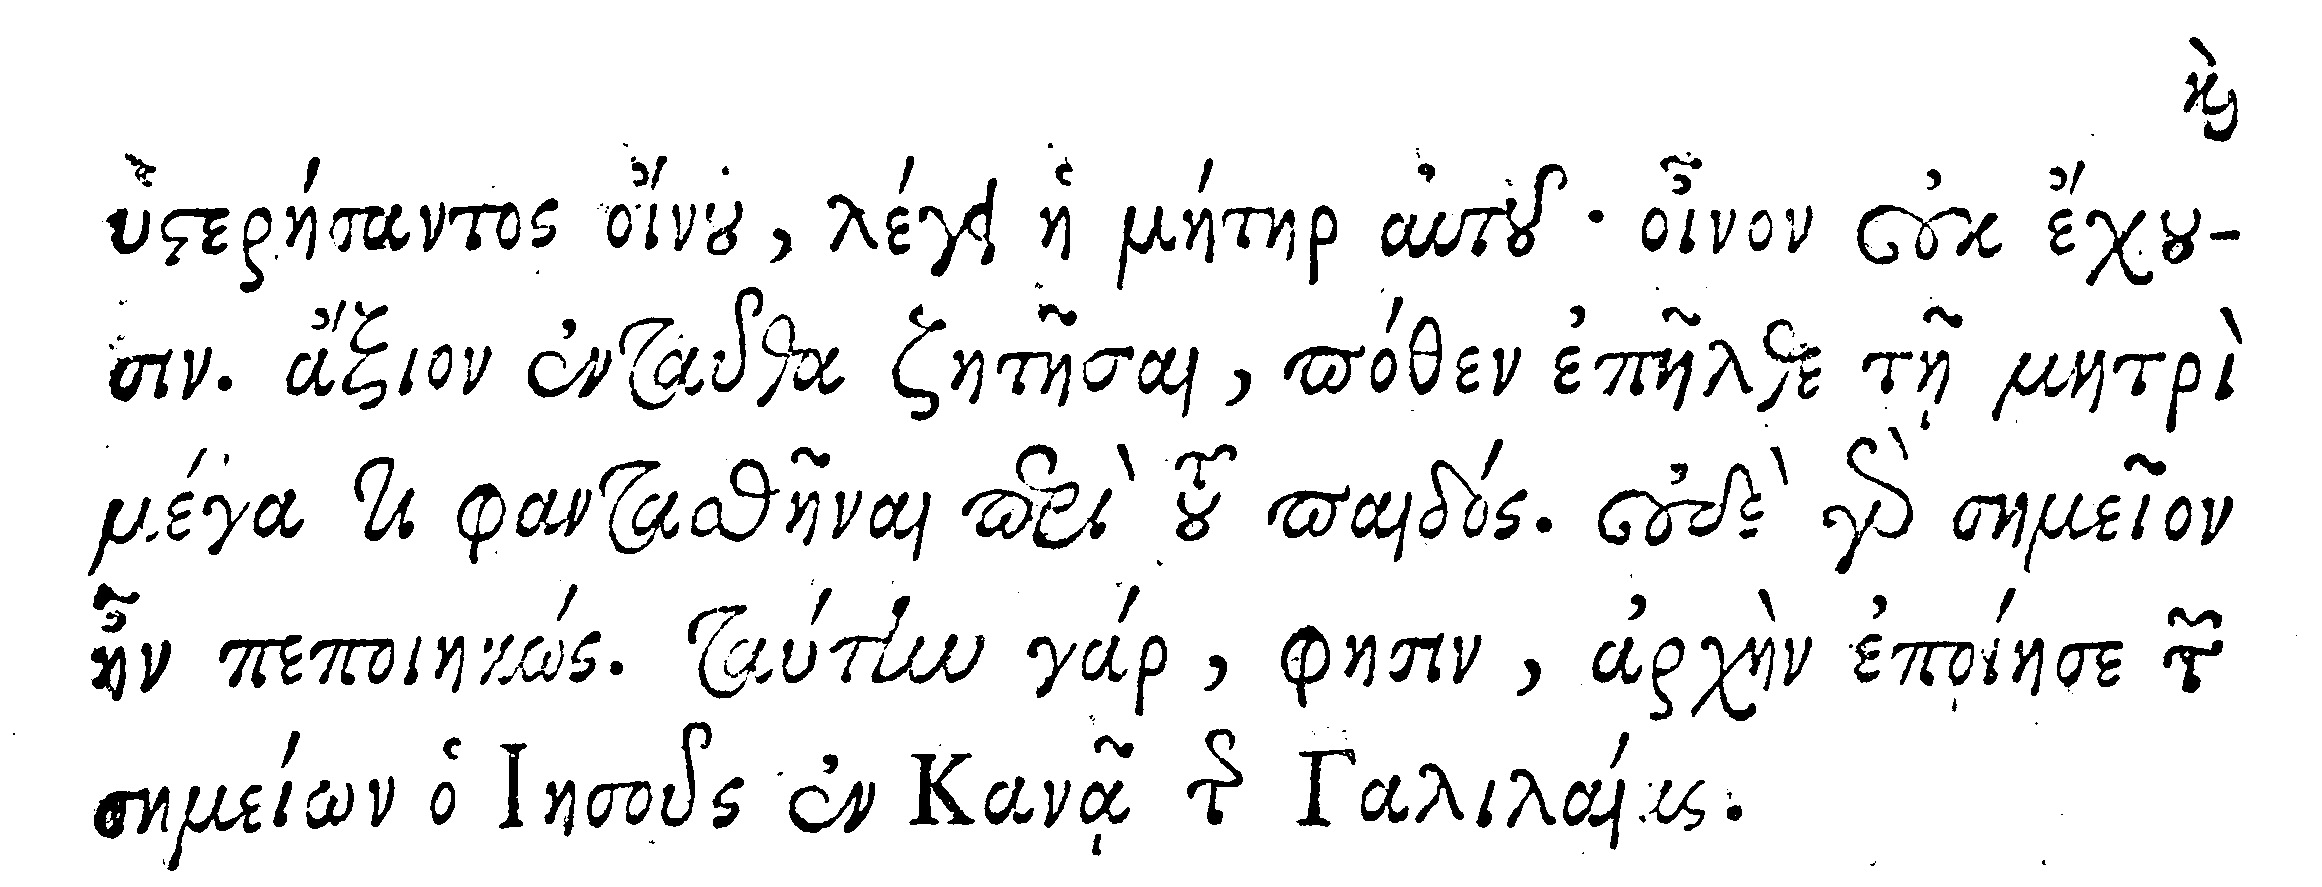 καὶ
ὑστερήσαντος οἴνου, λέγει ἡ μήτηρ αὐτοῦ· οἶνον οὐκ ἔχου-
σιν. ἄξιον ἐνταῦθα ζητῆσαι, πόθεν ἐπῆλθε τῇ μητρὶ
μέγα τι φαντασθῆναι περὶ τοῦ παιδός. οὐδὲ γὰρ σημεῖον
ἦν πεποιηκώς. ταύτην γάρ, φησιν, ἀρχὴν ἐποίησε τῶν
σημείων ὁ Ιησοῦς ἐν Κανᾷ τῆς Γαλιλαίας.